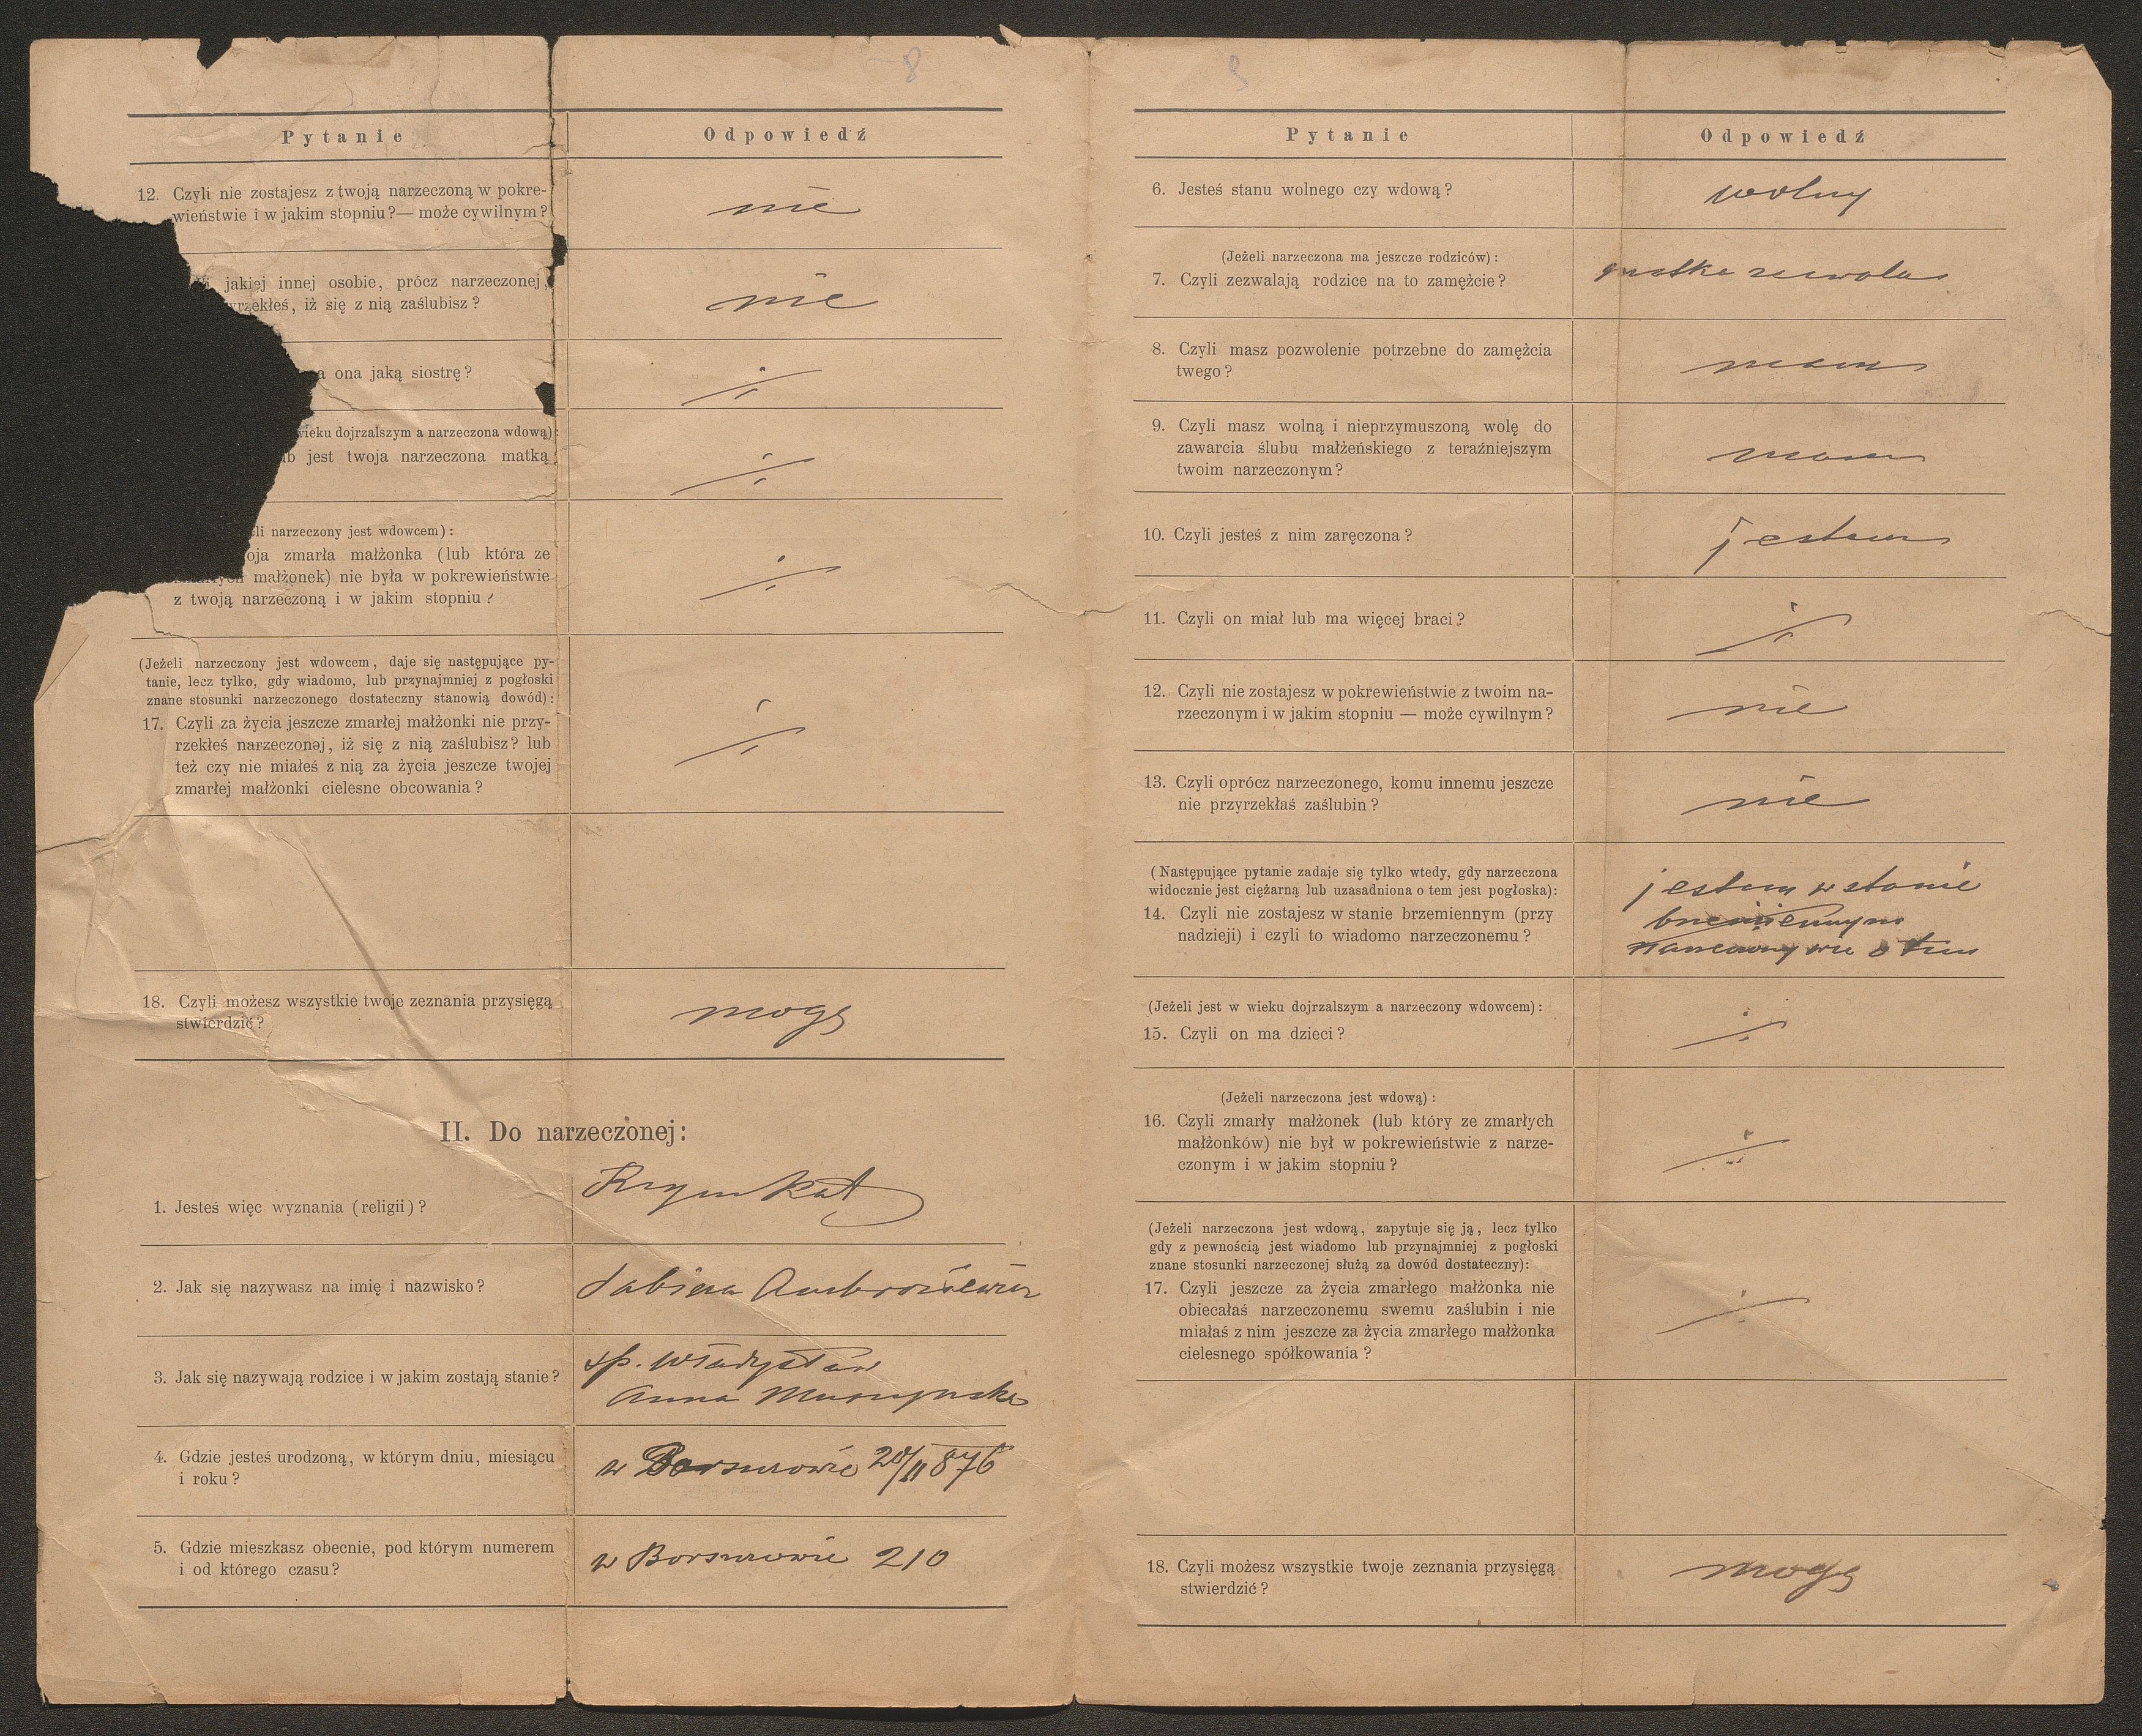 8
Pytanie
Odpowiedź
12. Czyli nie zostajesz z twoją narzeczoną w pokre-
wieństwie i w jakim stopniu?— może cywilnym?
nie
jakiej innej osobie, prócz narzeczonej,
yrzekłeś, iż się z nią zaślubisz?
nie
a ona jaką siostrę?
÷
wieku dojrzalszym a narzeczona wdową):
b jest twoja narzeczona matką
÷
eli narzeczony jest wdowcem):
oja zmarła małżonka (lub która ze
zmarłych małżonek) nie była w pokrewieństwie
z twoją narzeczoną i w jakim stopniu?
÷
(Jeżeli narzeczony jest wdowcem, daje się następujące py-
tanie, lecz tylko, gdy wiadomo, lub przynajmniej z pogłoski
znane stosunki narzeczonego dostateczny stanowią dowód):
17. Czyli za życia jeszcze zmarłej małżonki nie przy-
rzekłeś narzeczonej, iż się z nią zaślubisz? lub
też czy nie miałeś z nią za życia jeszcze twojej
zmarłej małżonki cielesne obcowania?
÷
18. Czyli możesz wszystkie twoje zeznania przysięgą
stwierdzić?
mogę
II. Do narzeczonej:
1. Jesteś więc wyznania (religii)?
Rzym kat
2. Jak się nazywasz na imię i nazwisko?
Sabina Ambroziewicz
3. Jak się nazywają rodzice i w jakim zostają stanie?
śp. Władysław
Anna Muszyńska
4. Gdzie jesteś urodzoną, w którym dniu, miesiącu
i roku?
w Borszczowie 20/11 876
5. Gdzie mieszkasz obecnie, pod którym numerem
i od którego czasu?
w Borszczowie 210
9
Pytanie
Odpowiedź
6. Jesteś stanu wolnego czy wdową?
wolny
(Jeżeli narzeczona ma jeszcze rodziców):
7. Czyli zezwalają rodzice na to zamęźcie?
matka zezwala
8. Czyli masz pozwolenie potrzebne do zamęźcia
twego?
mam
9. Czyli masz wolną i nieprzymuszoną wolę do
zawarcia ślubu małżeńskiego z teraźniejszym
twoim narzeczonym?
mam
10. Czyli jesteś z nim zaręczona?
jestem
11. Czyli on miał lub ma więcej braci?
÷
12. Czyli nie zostajesz w pokrewieństwie z twoim na-
rzeczonym i w jakim stopniu — może cywilnym?
nie
13. Czyli oprócz narzeczonego, komu innemu jeszcze
nie przyrzekłaś zaślubin?
nie
(Następujące pytanie zadaje się tylko wtedy, gdy narzeczona
widocznie jest ciężarną lub uzasadniona o tem jest pogłoska):
14. Czyli nie zostajesz w stanie brzemiennym (przy
nadzieji) i czyli to wiadomo narzeczonemu?
jestem w stanie
brzemiennym
narzeczony wie o tem
(Jeżeli jest w wieku dojrzalszym a narzeczony wdowcem):
15. Czyli on ma dzieci?
÷
(Jeżeli narzeczona jest wdową):
16. Czyli zmarły małżonek (lub który ze zmarłych
małżonków) nie był w pokrewieństwie z narze-
czonym i w jakim stopniu?
÷
(Jeżeli narzeczona jest wdową, zapytuje się ją, lecz tylko
gdy z pewnością jest wiadomo lub przynajmniej z pogłoski
znane stosunki narzeczonej służą za dowód dostateczny):
17. Czyli jeszcze za życia zmarłego małżonka nie
obiecałaś narzeczonemu swemu zaślubin i nie
miałaś z nim jeszcze za życia zmarłego małżonka
cielesnego spółkowania?
÷
18. Czyli możesz wszystkie twoje zeznania przysięgą
stwierdzić?
mogę